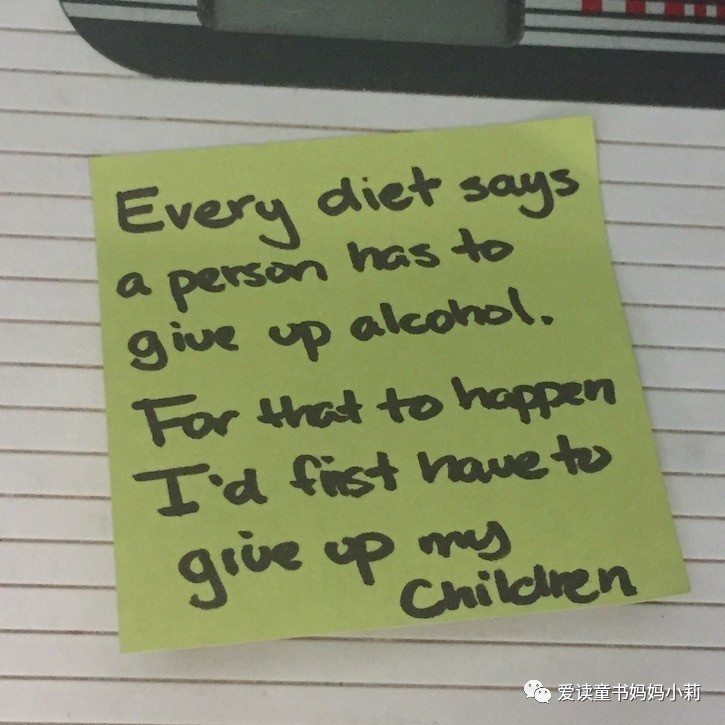 Every diet says
a person has to
give up alcohol.
For that to happen
I'd first have to
give up my
Children
爱读童书妈妈小莉